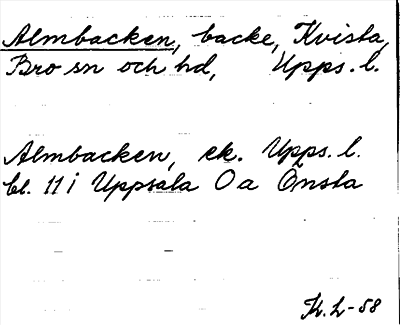 Almbacken, backe, Kvista,
Bro sn och hd, Upps. l.
Almbacken, ek. Upps. l.
bl. 11 i Uppsala O a Önsta
K. L-58